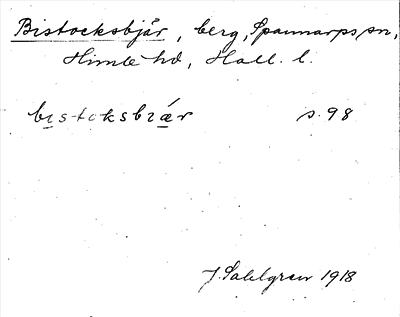 Bistocksbjär, berg, Spannarps sn,
Himle hd, Hall. l.
bistoksbiár s. 98
J. Sahlgren 1918